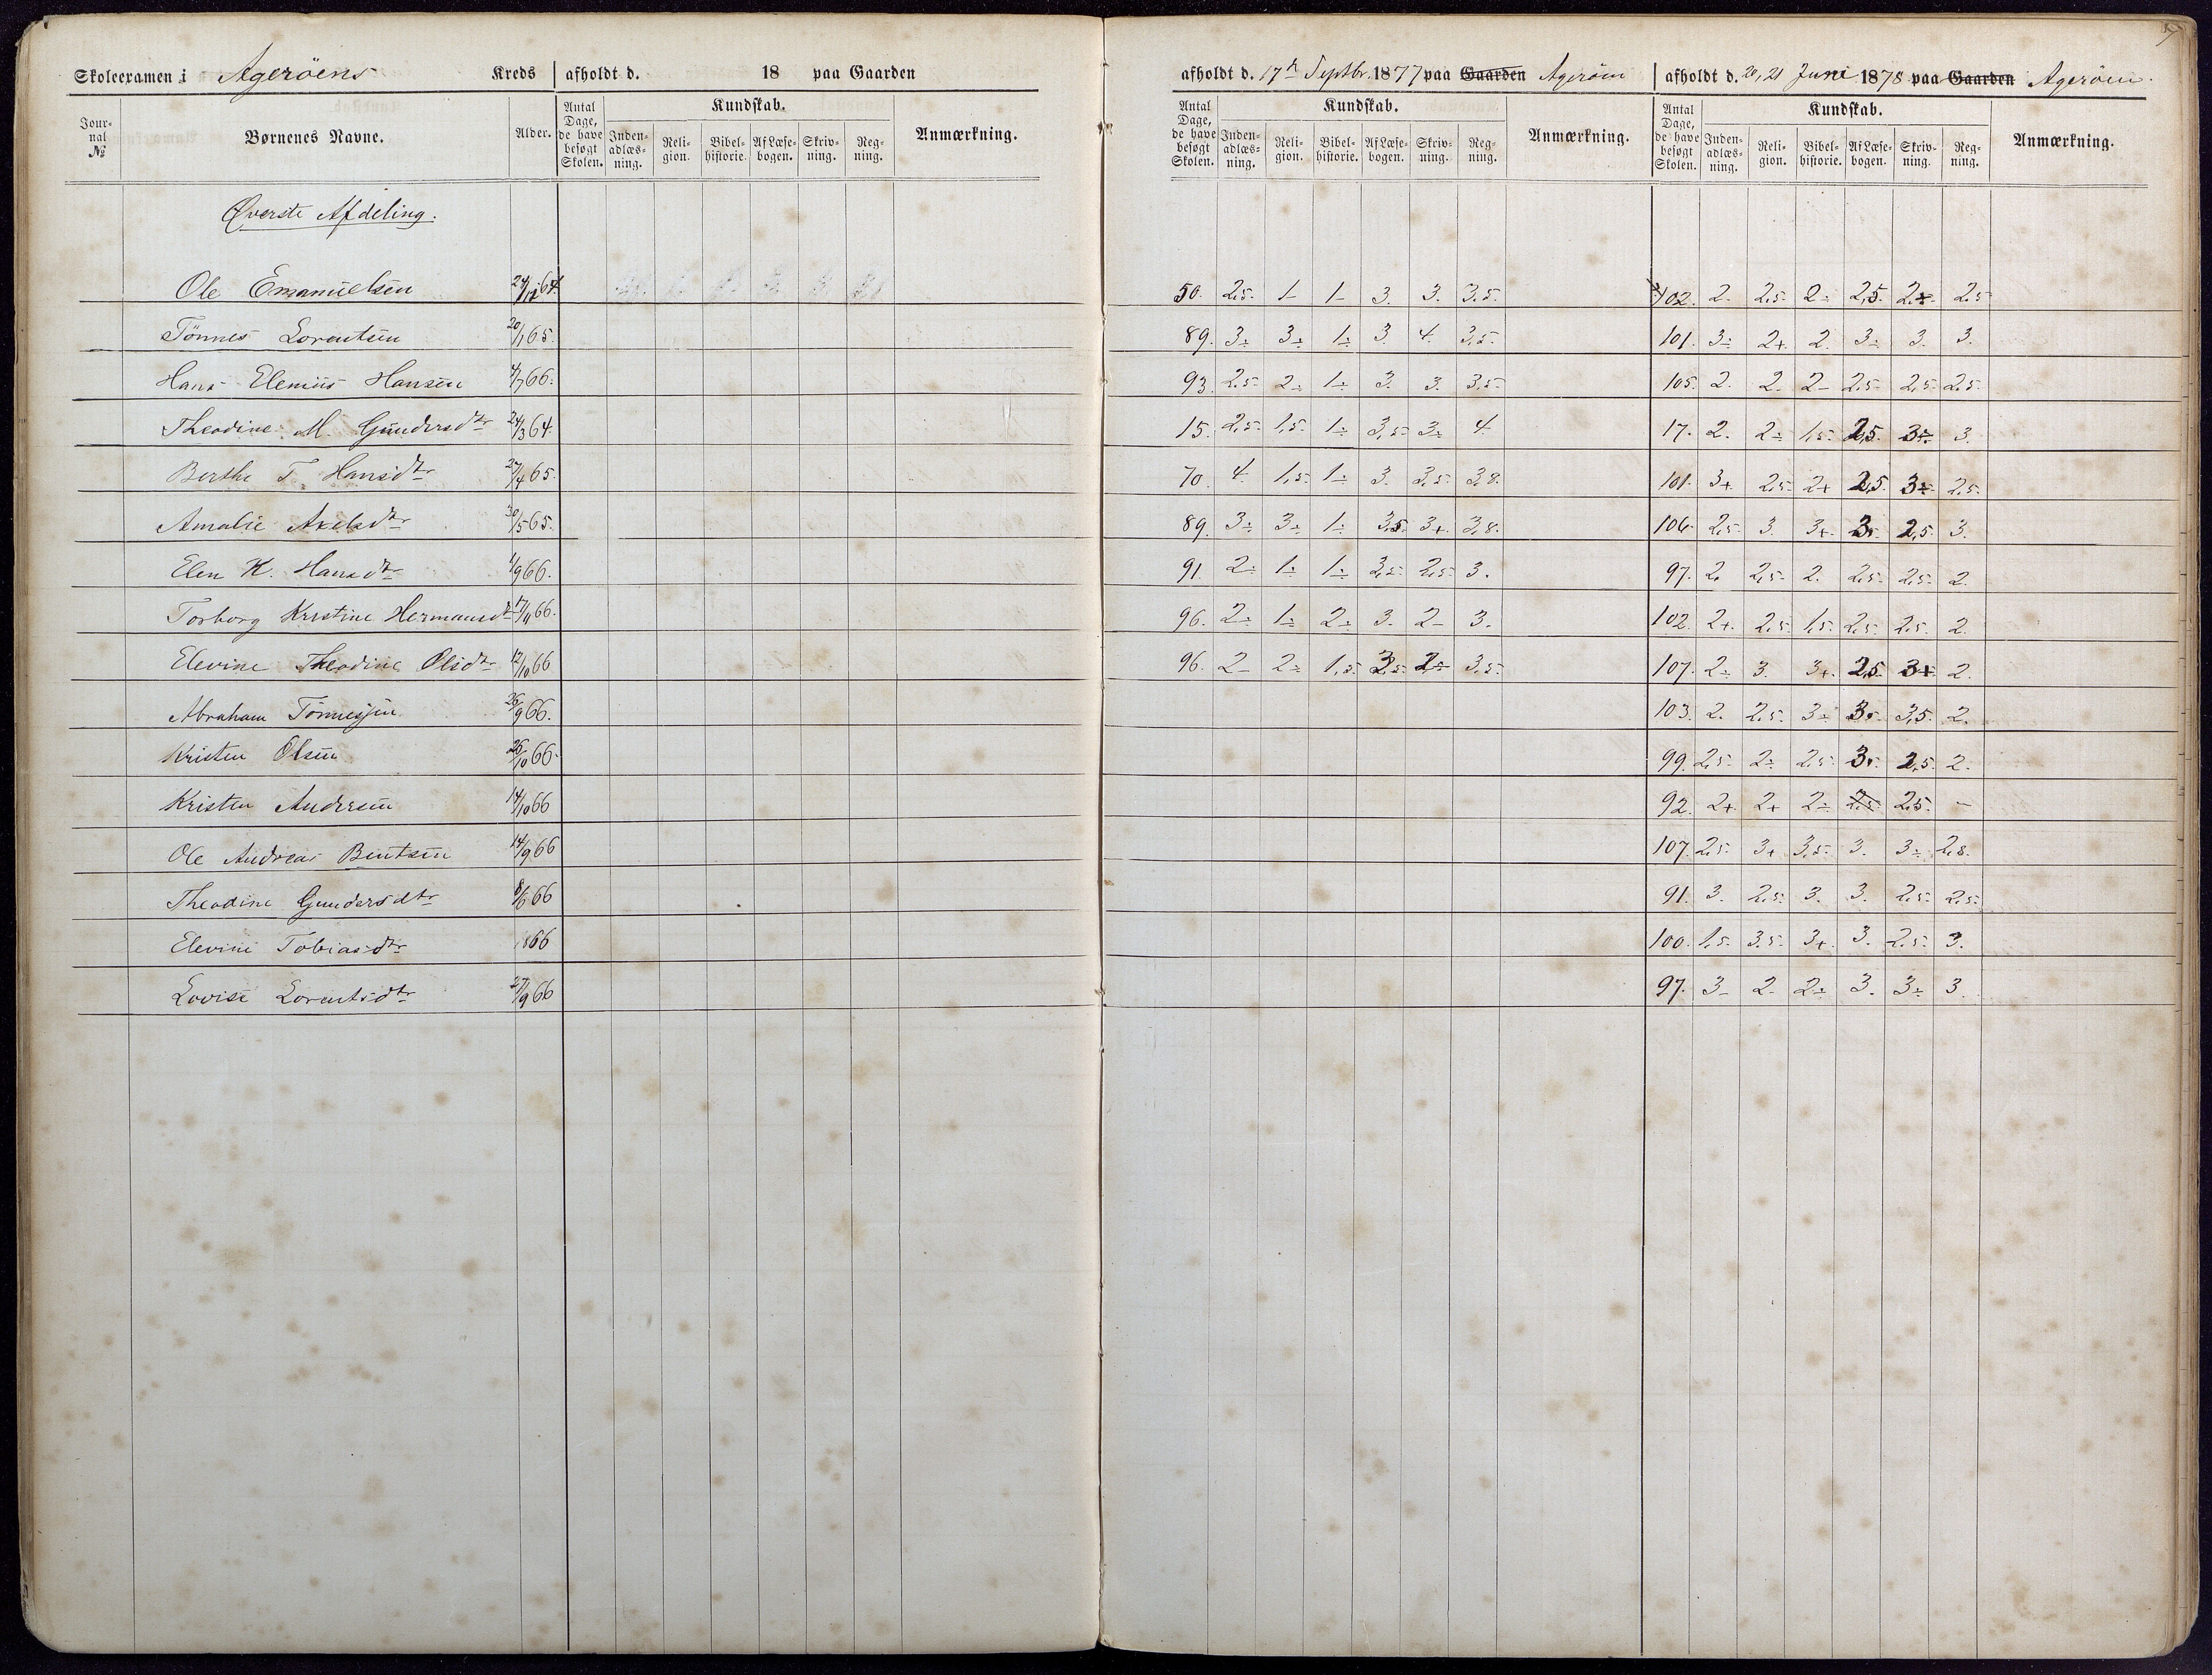 7
Skoleexamen i Agerøens Kreds afholdt d. 18 paa Gaarden afholdt d. 17de Septbr. 1877 paa Gaarden Agerøen afholdt d. 20, 21 Juni 1878 paa Gaarden Agerøen.
Jour-nal № Børnenes Navne. Alder. Antal Dage, de have besøgt Skolen. Kundskab. Inden-adlæs-ning. Reli-gion. Bibel-historie. Af Læse-bogen. Skriv-ning. Reg-ning. Anmærkning. Antal Dage, de have besøgt Skolen. Kundskab. Inden-adlæs-ning. Reli-gion. Bibel-historie. Af Læse-bogen. Skriv-ning. Reg-ning. Anmærkning. Antal Dage, de have besøgt Skolen. Kundskab. Inden-adlæs-ning. Reli-gion. Bibel-historie. Af Læse-bogen. Skriv-ning. Reg-ning. Anmærkning.
Øverste Afdeling.
Ole Emanuelsen 24/12 64. 50. 2,5. 1- 1- 3. 3. 3,5. 102. 2. 2,5. 2- 2,5. 2+ 2,5
Tønnes Lorentsen 20/1 65. 89. 3÷ 3÷ 1÷ 3. 4. 3,5. 101. 3÷ 2+ 2. 3÷ 3. 3.
Hans Elenius Hansen 4/7 66. 93. 2,5. 2÷ 1÷ 3. 3. 3,5. 105. 2. 2. 2- 2,5. 2,5. 2,5.
Theodine M. Gundersdtr 24/3 64. 15. 2,5. 1,5. 1÷ 3,5. 3÷ 4. 17. 2. 2÷ 1,5. 2,5. 3÷ 3.
Berthe T. Hansdtr 27/4 65. 70. 4. 1,5. 1÷ 3. 3,5. 3,8. 101. 3+ 2,5. 2+ 2,5. 3÷ 2,5.
Amalie Axelsdtr 30/5 65. 89. 3÷ 3÷ 1÷ 3,5. 3+. 3,8. 106. 2,5. 3. 3+. 3. 2,5. 3.
Elen K. Hansdtr 1/9 66. 91. 2÷ 1÷ 1÷ 3,5. 2,5. 3. 97. 2. 2,5. 2. 2,5. 2,5. 2.
Torborg Kristine Hermansdtr 17/11 66. 96. 2÷ 1÷ 2÷ 3. 2- 3. 102. 2+. 2,5. 1,5. 2,5. 2,5. 2.
Elevine Theodine Olsdtr 12/10 66 96. 2- 2÷ 1,5. 3,5. 2÷ 3,5. 107. 2÷ 3. 3+. 2,5. 3+ 2.
Abraham Tønnesen 26/9 66. 103. 2. 2,5. 3÷ 3. 3,5. 2.
Kristen Olsen 26/10 66. 99. 2,5. 2÷ 2,5. 3. 2,5. 2.
Kristen Andersen 14/10 66 92. 2+. 2+ 2÷ 2,5 2,5. -
Ole Andreas Bentsen 14/9 66 107. 2,5. 3+ 3,5. 3. 3÷ 2,8.
Theodine Gundersdtr 8/6 66 91. 3. 2,5. 3. 3. 2,5. 2,5.
Elevine Tobiasdtr 1866 100. 1,5. 3,5. 3+. 3. 2,5. 3.
Lovise Lorentsdtr 27/9 66 97. 3- 2. 2÷ 3. 3÷ 3.